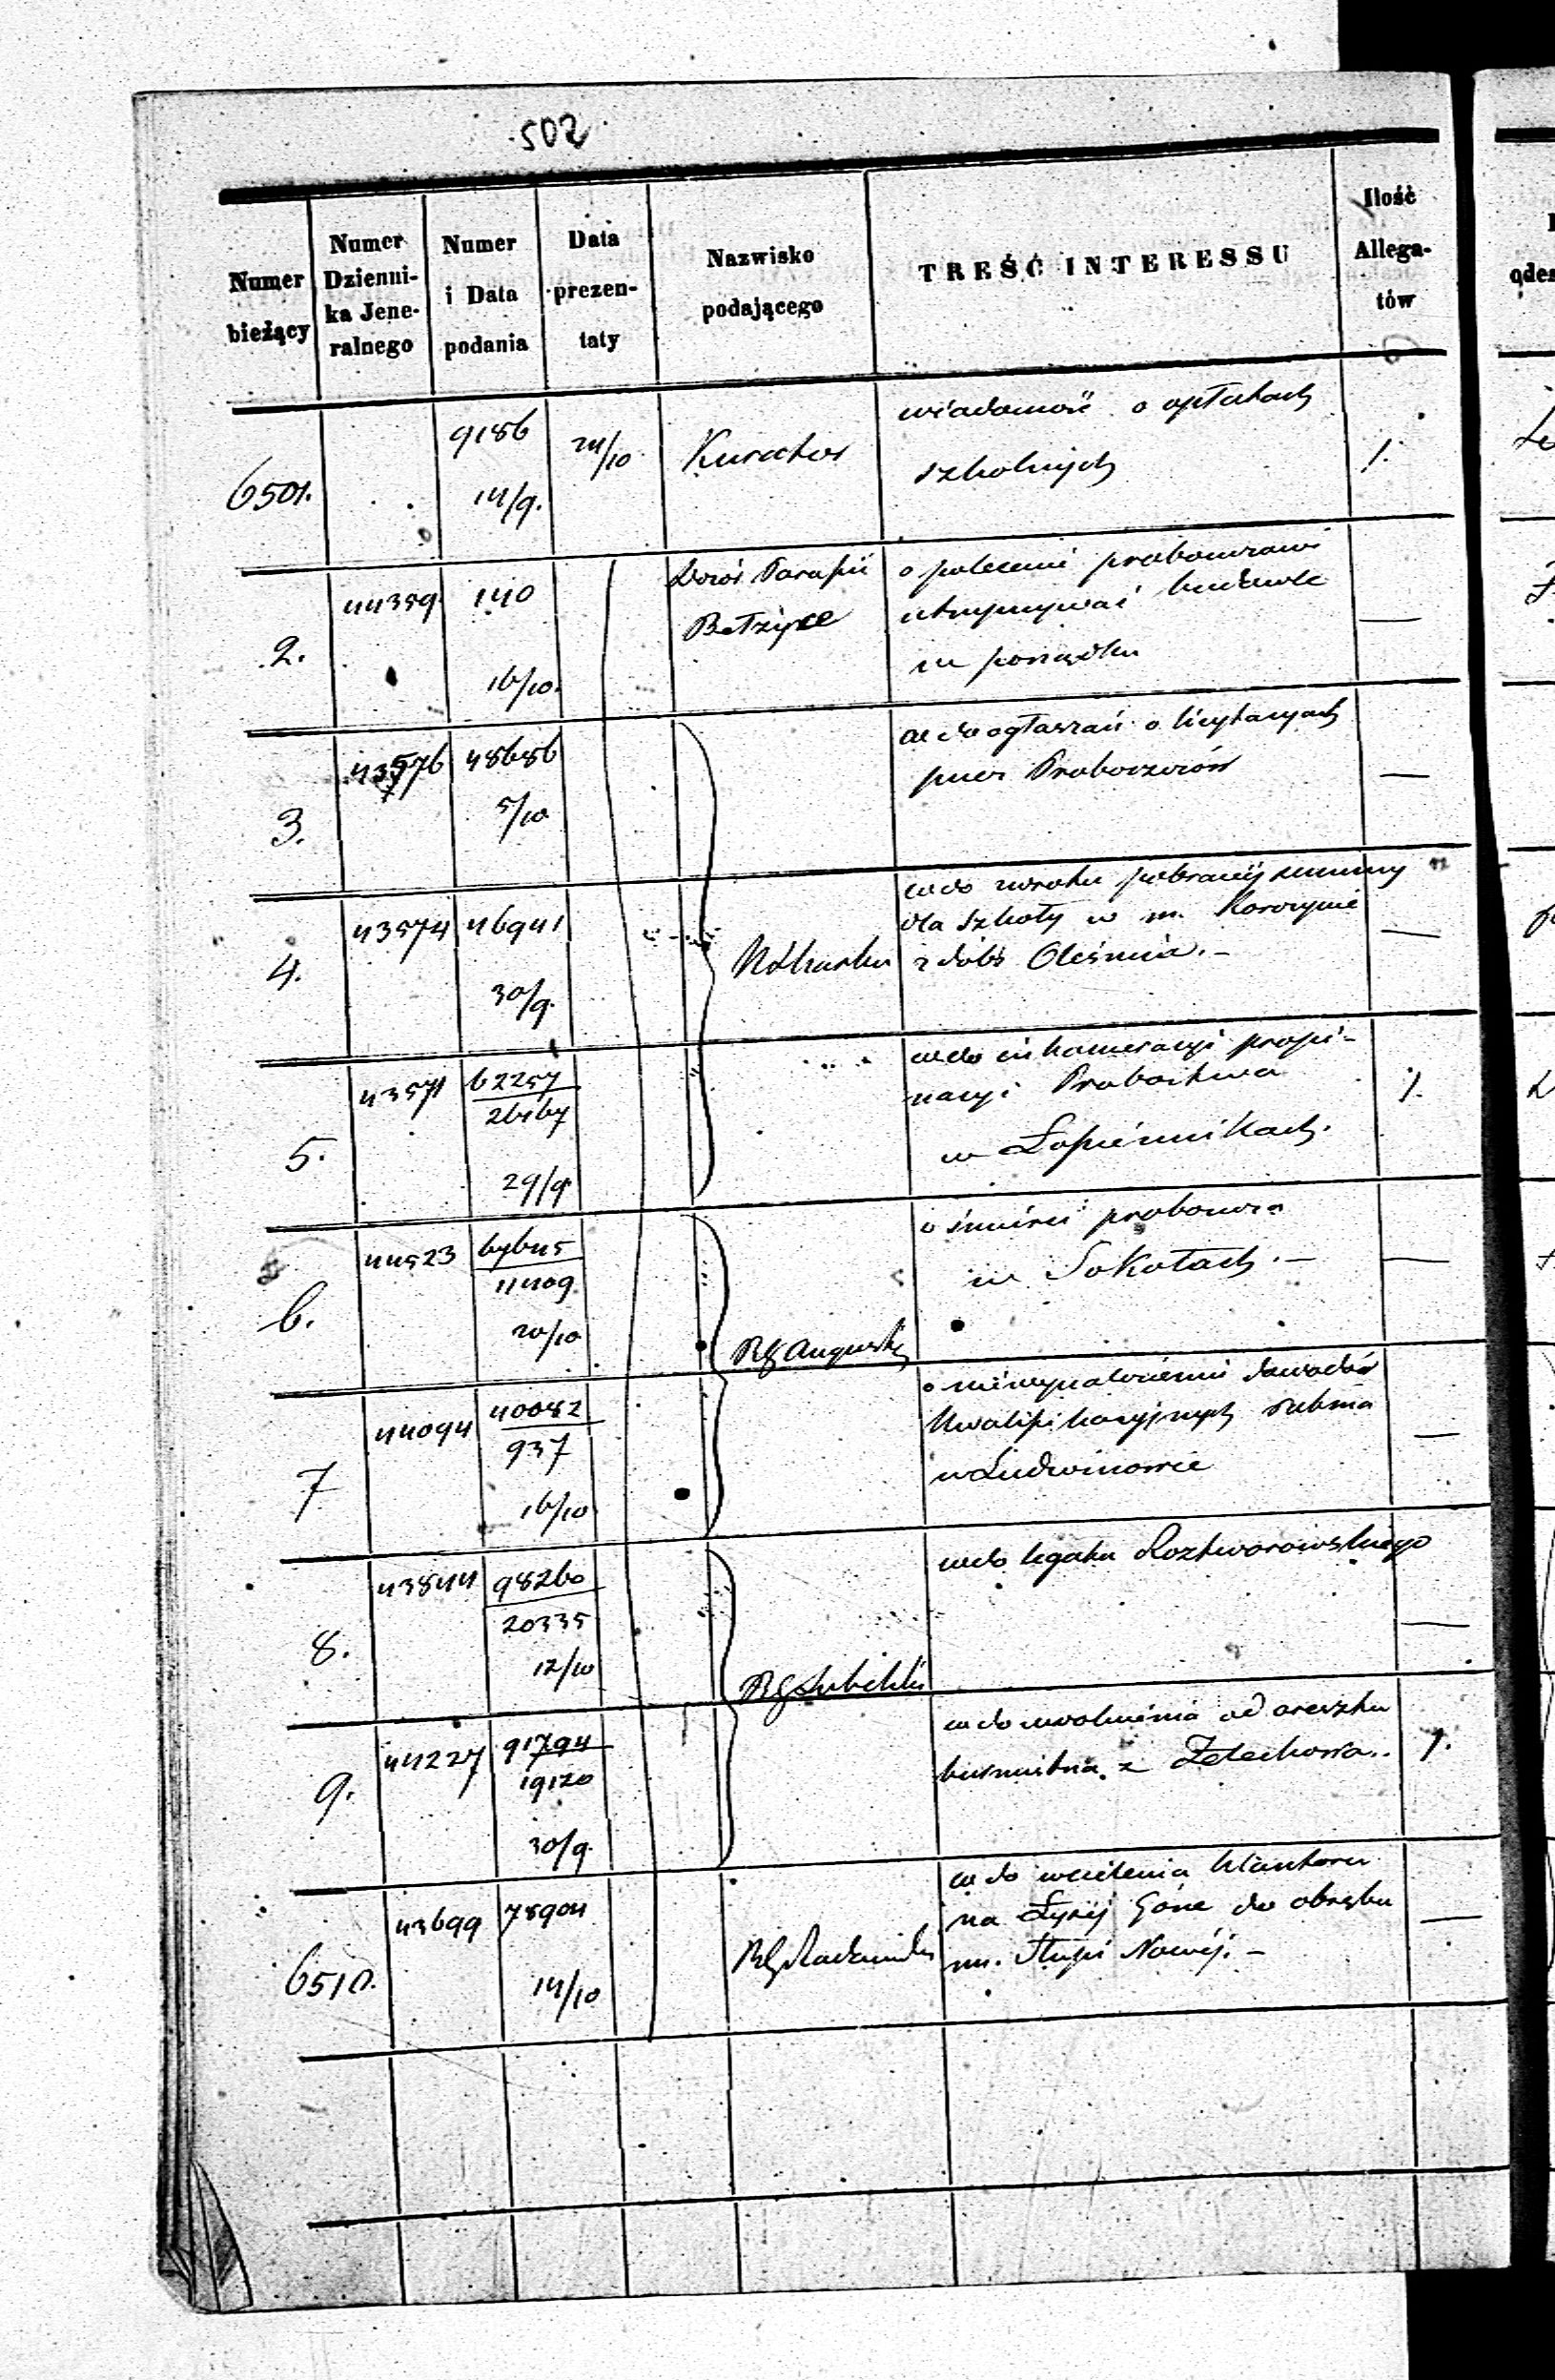 502
Numer bieżący
Numer Dzienni-
ka Jene-
ralnego
Numer i Data podania
Data prezen-
taty
Nazwisko podającego
TREŚĆ INTERESSU
Ilość Allega-
tów
6501.
9186
14/9.
24/10
Kurator
wiadomość o opłatach
szkolnych
1.
2.
44359
140
16/10.
Dozór Parafii
Bełżyce
o polecenie proboszczowi
utrzymywać budowle
w porządku
—
3.
43576
48686
5/10
co do ogłaszań o licytacyach
przez Proboszczów
—
4.
43574
46941
30/9.
co do zwrotu pobranéj summy
dla szkoły w m.
z dóbr Oleśnica. -
—
5.
43571
62257
26167
29/9
co do inkameracyi propi-
nacyi Probostwa
w Łopiennikach.
1.
6.
44523
67645
11409
20/10
RG Augustow
o śmierci proboszcza
w Sokołach. -
—
7
44094
40082
937
16/10
o niewynalezieniu dowodów
kwalifikacyjnych rabina
w Ludwinowie
—
8.
43844
98260
20335
12/10
RG Lubelski
co do legatu Roztworowskiego
—
9.
44227
91794
19120
30/9.
co do uwolnienia od aresztu
z Żelechowa..
1.
6510.
43699
78904
14/10
RG Radomski
co do wcielenia klasztoru
na Łyséj Górze do obrębu
m. Słupi Nowéj. -
—